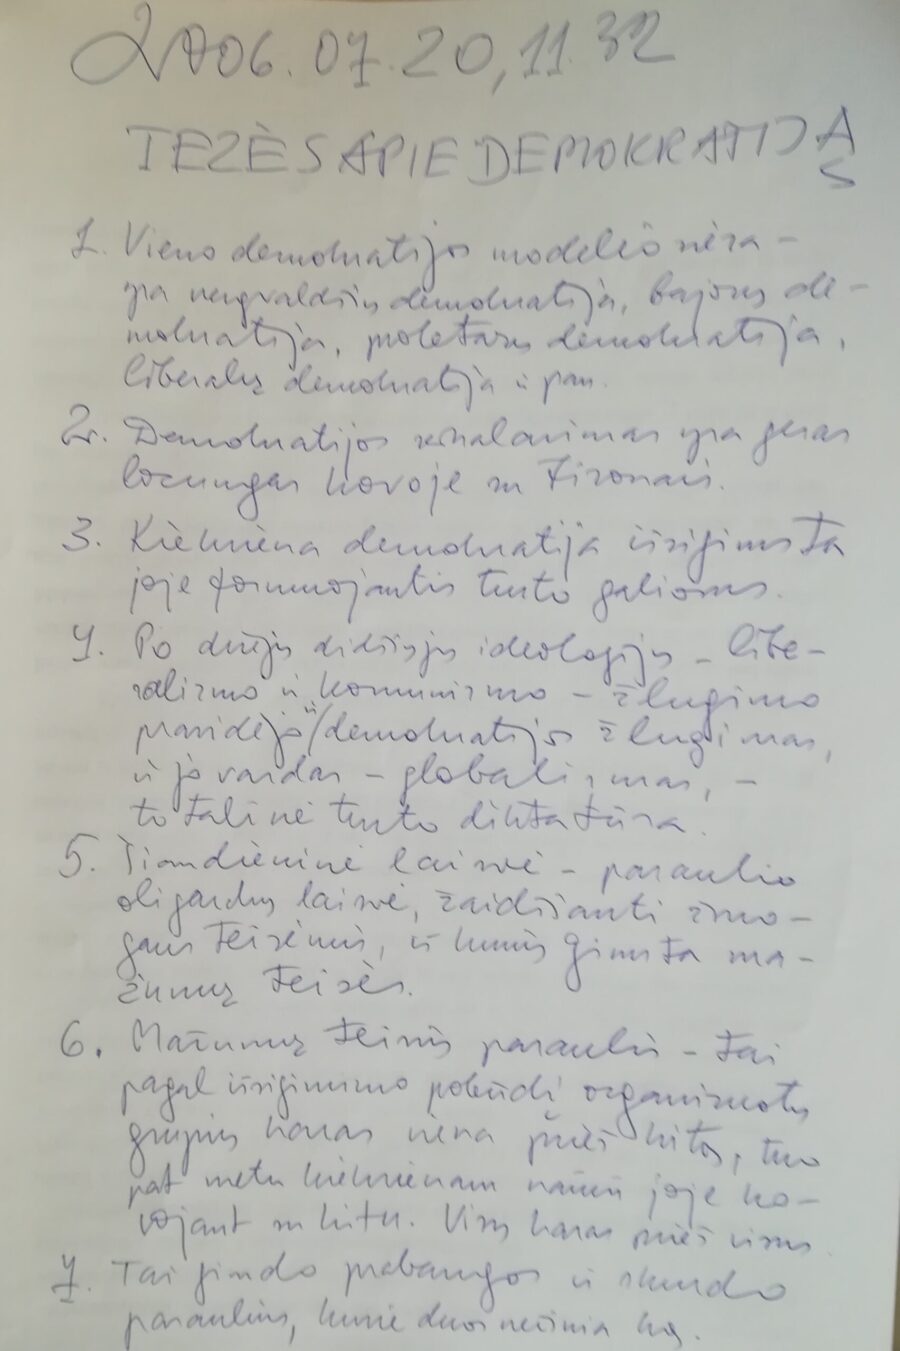 2006.07.20, 11.32
TEZĖS APIE DEMOKRATIJĄ
1. Vieno demokratijos modelio nėra –
yra vergvaldžių demokratija, bajorų de-
mokratija, proletarų demokratija,
liberalų demokratija ir pan.
2. Demokratijos reikalavimas yra geras
lozungas kovoje su tironais.
3. Kiekviena demokratija išsigimsta
joje formuojantis turto galioms.
4. Po dviejų didžiųjų ideologijų – libe-
ralizmo ir komunizmo – žlugimo
prasidėjo ir demokratijos žlugimas,
ir jo vardas – globalizmas, –
totalinė turto diktatūra.
5. Šiandieninė laisvė – pasaulio
oligarchų laisvė, žaidžianti žmo-
gaus teisėmis, iš kurių gimsta ma-
žumų teisės.
6. Mažumų teisių pasaulis – tai
pagal išsigimimo pobūdį organizuotų
grupių karas viena prieš kitą, tuo
pat metu kiekvienam nariui joje ko-
vojant su kitu. Visų karas prieš visus.
7. Tai gimdo prabangos ir skurdo
pasaulius, kurie duos nežinia ką.